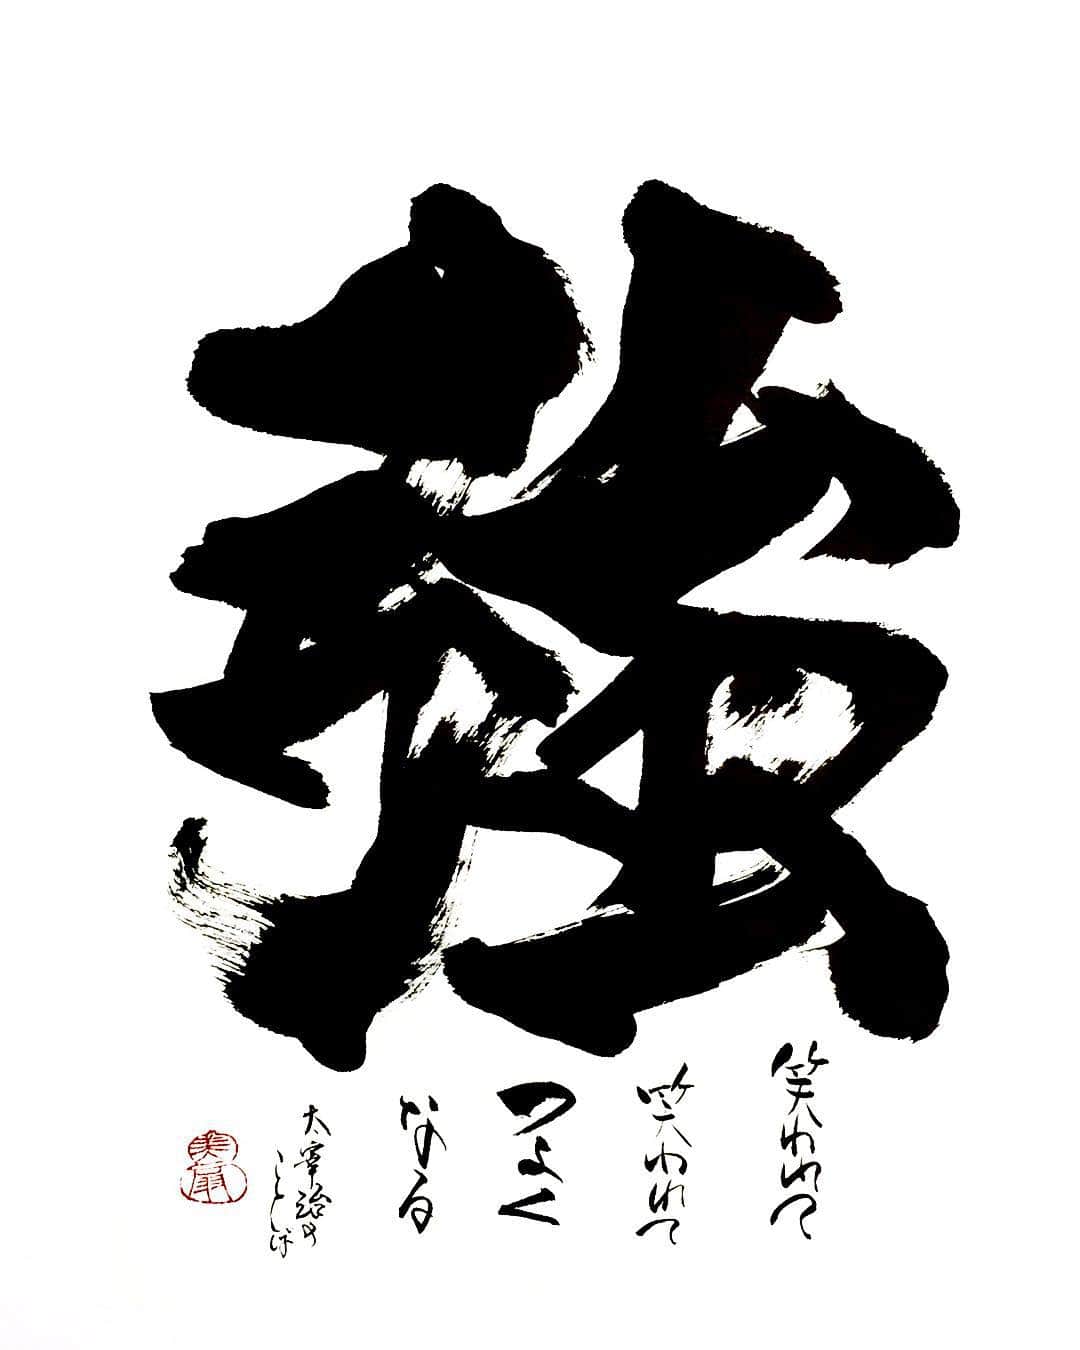 強
笑われて
笑われて
つよく
なる
太宰治の
ことば